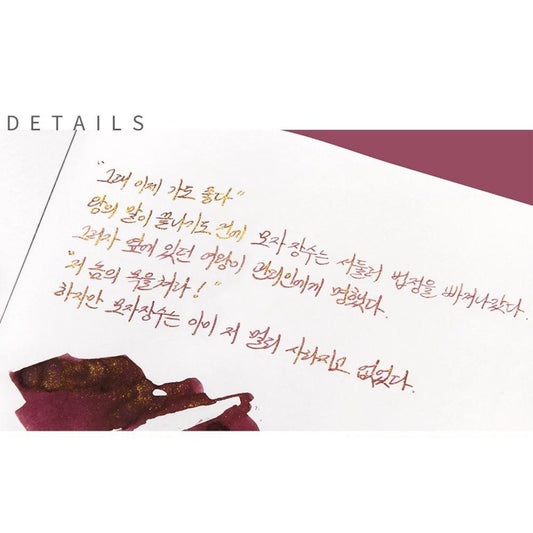 DETAILS
"그래 이제 가도 좋다"
왕의 말이 끝나기도 전에 모자 장수는 서둘러 법정을 빠져나갔다.
그러자 옆에 있던 여왕이 관리인에게 명했다.
"저 놈의 목을쳐라!"
하지만 모자장수는 이미 저 멀리 사라지고 없었다.